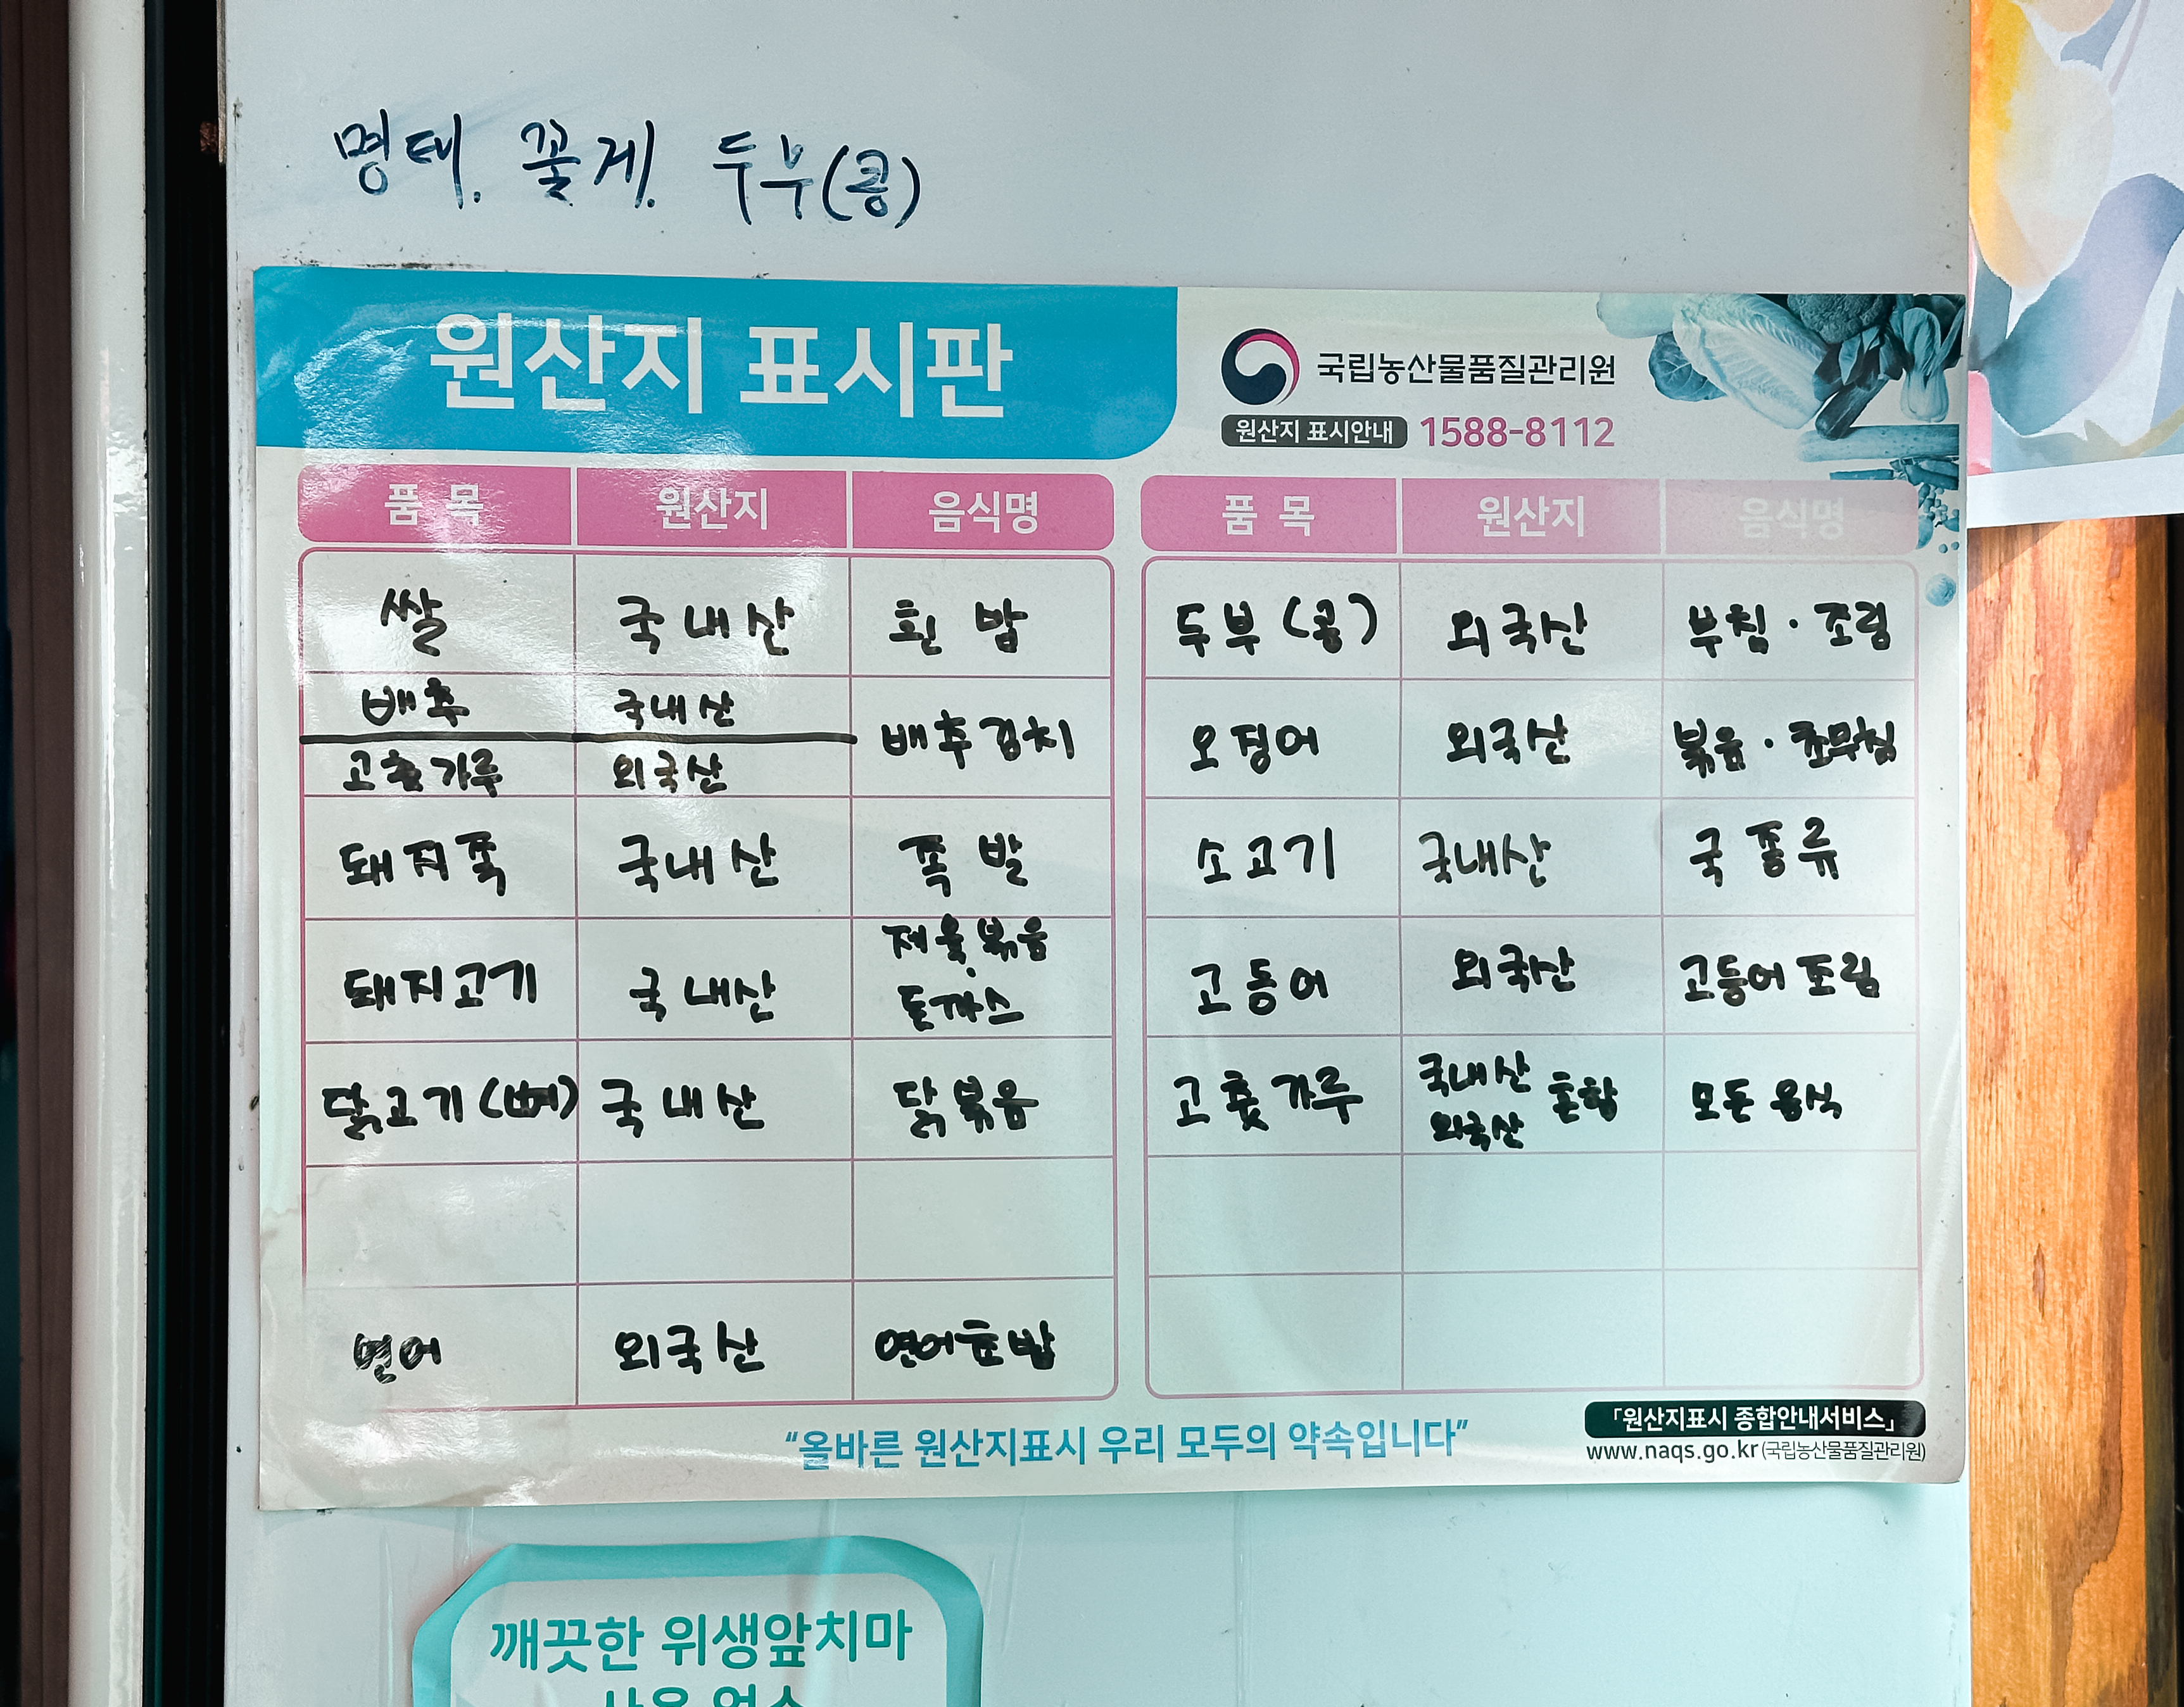 명태. 꽃게. 두부(콩)
원산지 표시판
국립농산물품질관리원
원산지 표시안내 1588-8112
품 목 원산지 음식명
쌀 국내산 흰밥
배추 국내산 배추김치
고춧가루 외국산
돼지족 국내산 족발
돼지고기 국내산 제육볶음 · 돈까스
닭고기(뼈) 국내산 닭볶음
연어 외국산 연어초밥
품 목 원산지 음식명
두부(콩) 외국산 부침 · 조림
오징어 외국산 볶음 · 초무침
소고기 국내산 국 종류
고등어 외국산 고등어 조림
고춧가루 국내산 외국산 혼합 모든 음식
“올바른 원산지표시 우리 모두의 약속입니다”
「원산지표시 종합안내서비스」
www.naqs.go.kr(국립농산물품질관리원)
깨끗한 위생앞치마
사용 업소